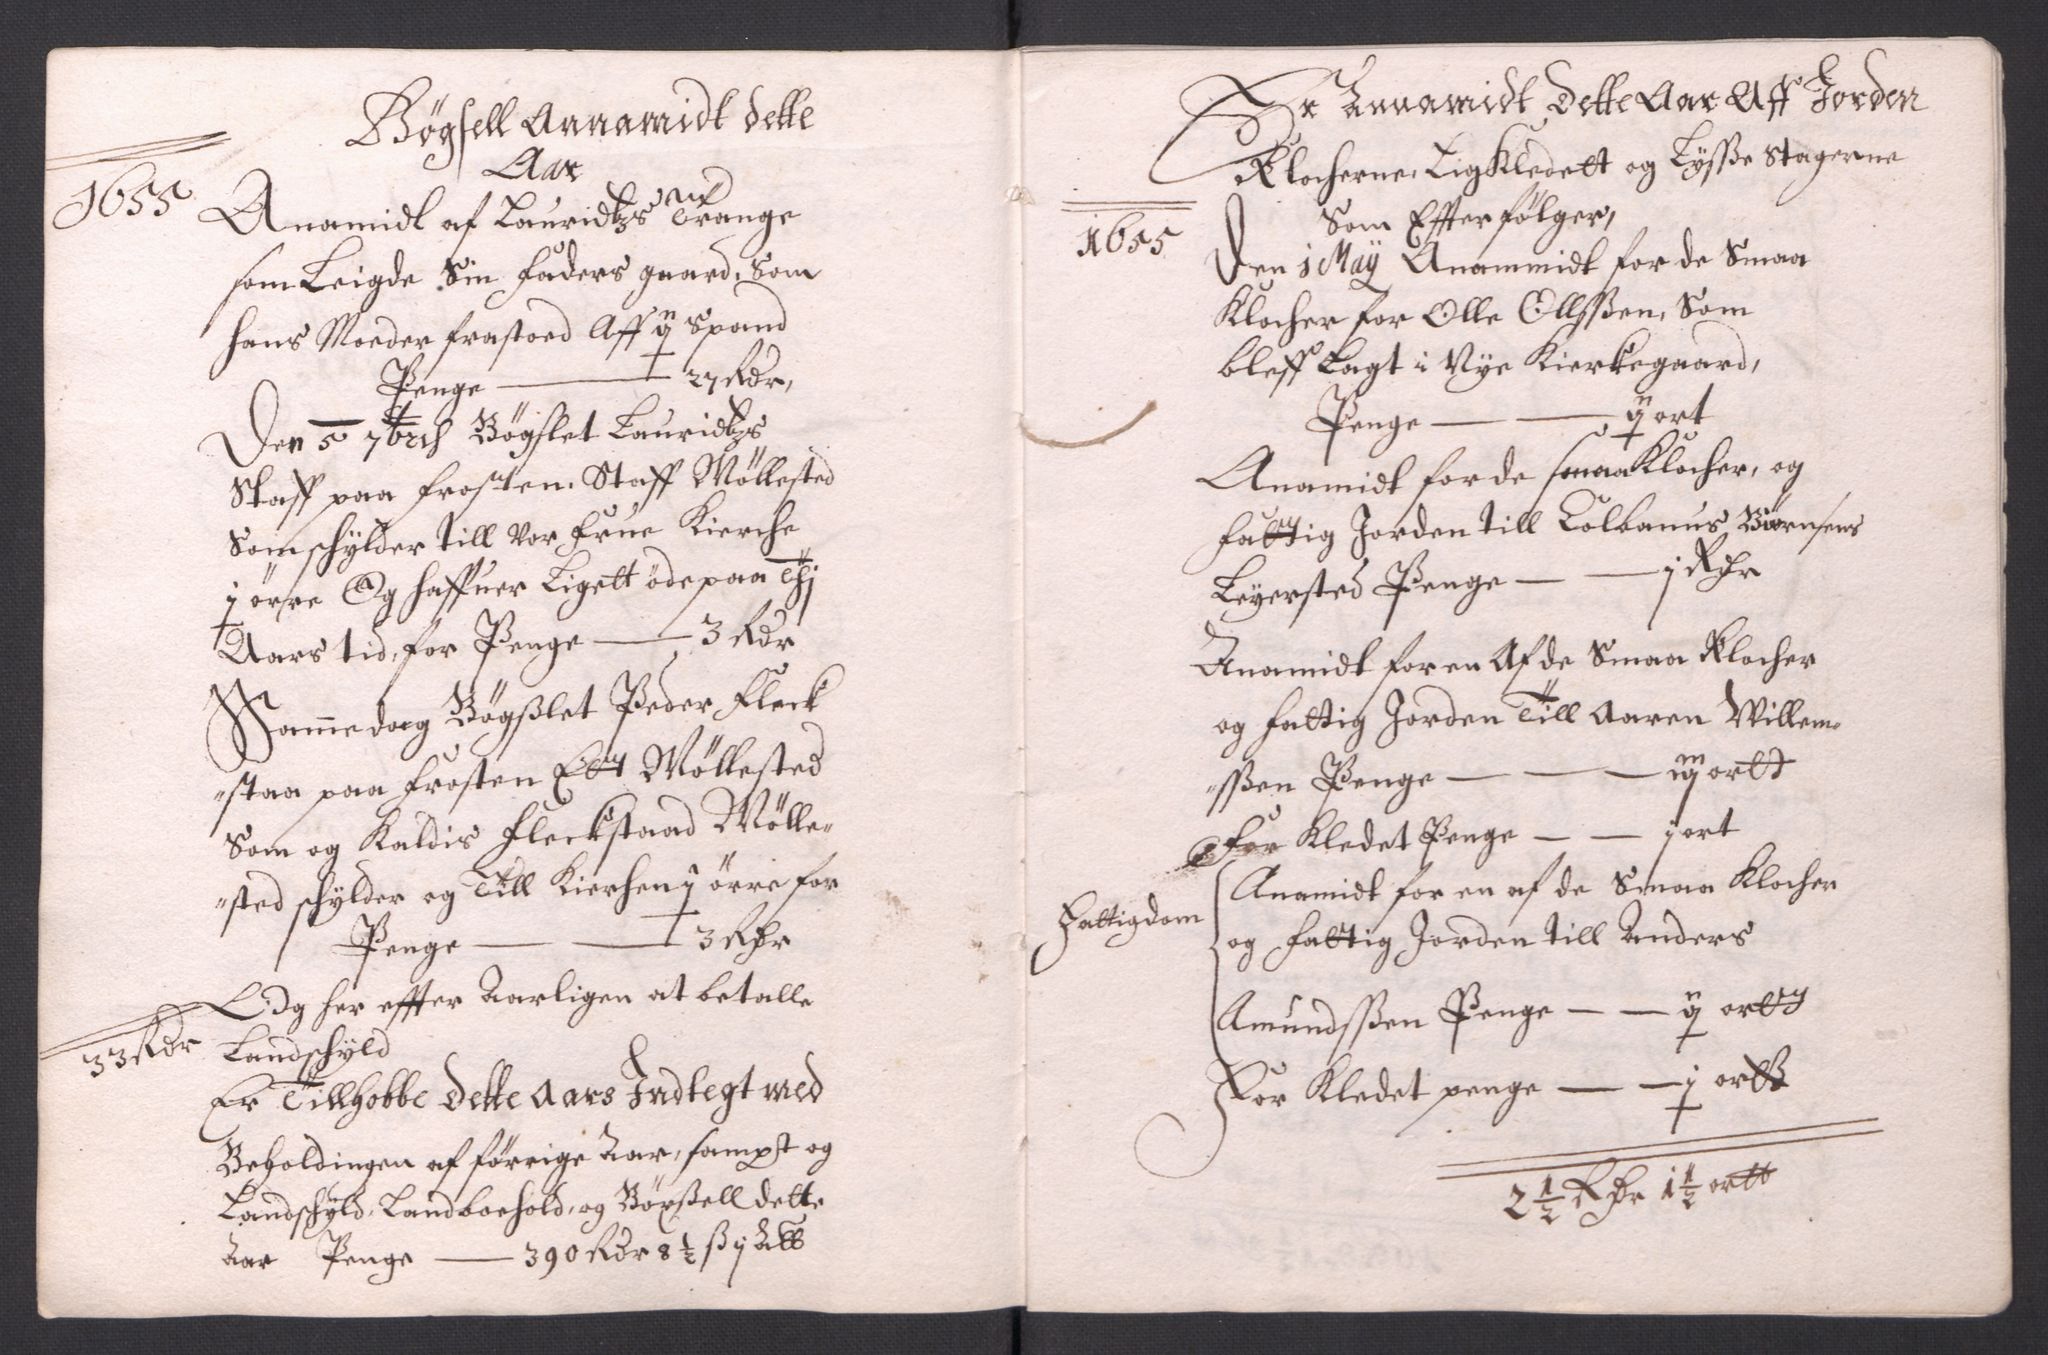 Bögsell Annamidt dette
Aar
1655
Anamidt af Lauridtzs Trange
som Leigde Sin Faders gaard, Som
hans Moeder frastoed Aff ij Spand
Penge — 27 Rdr,
Den 5 7brch Bögslet Lauridtzs
Staff paa Frosten. Staff Möllested
Som schylder till Vor Frue Kierche
j örre Og haffuer Ligett öde paa
Aars tid, for Penge — 3 Rdr
Sammedag Bögßlet Peder Fleck
"staa paa Frosten Ett Möllested
Som og Kaldis Fleckstaad Mölle"
"sted schylder og Till Kierchen j örre for
Penge — — 3 Rdr
Og her effter Aarligen at betalle
Landschyld
33 Rdr
Er Tillhobbe Dette Aars Indtegt med
Beholdingen af förrige Aar, sampt og
Landschyld, Landboehold, og Börßell dette
Aar Penge — 390 Rdr 8 1/2 ß
Er Annamidt Dette Aar Aff Jorden
Klocherne, Ligkledett og Lysße Stagerne
Som Effterfölger,
1655
Den 1 May Anammidt for de Smaa
Klocher for Olle Ollsßen, Som
bleff Lagt i Nye Kierkegaard,
Penge — — ij ort
Anamidt for de smaa Klocher, og
fattig Jorden till Tolbanus Biörnsens
Leyersted Penge — — j Rdr
Anamidt for en Af de Smaa Klocher
og fattig Jorden Till Aaren Willem"
"sßen Penge — — — iij ortt
For Kledet Penge — — j ort
Fattigdom
Anamidt for en af de Smaa Klocher
og fattig Jorden till Anders
Amundsßen Penge — — ij ortt
For Kledet penge — — j ortt
2 1/2 Rdr 1 1/2 ortt